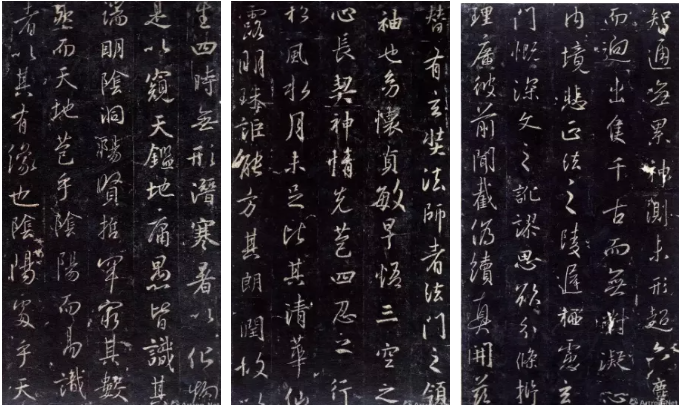 生四時無形潛寒暑以化物
是以窺天鑑地庸愚皆識其
端明陰洞陽賢哲罕窮其數
然而天地苞乎陰陽而易識
者以其有像也陰陽處乎天
替有玄奘法師者法門之領
袖也幼懷貞敏早悟三空之
心長契神情先苞四忍之行
松風水月未足比其清華仙
露明珠詎能方其朗潤故以
智通無累神測未形超六塵
而迥出隻千古而無對凝心
內境悲正法之陵遲栖慮玄
門慨深文之訛謬思欲分條析
理廣彼前聞截偽續真開茲